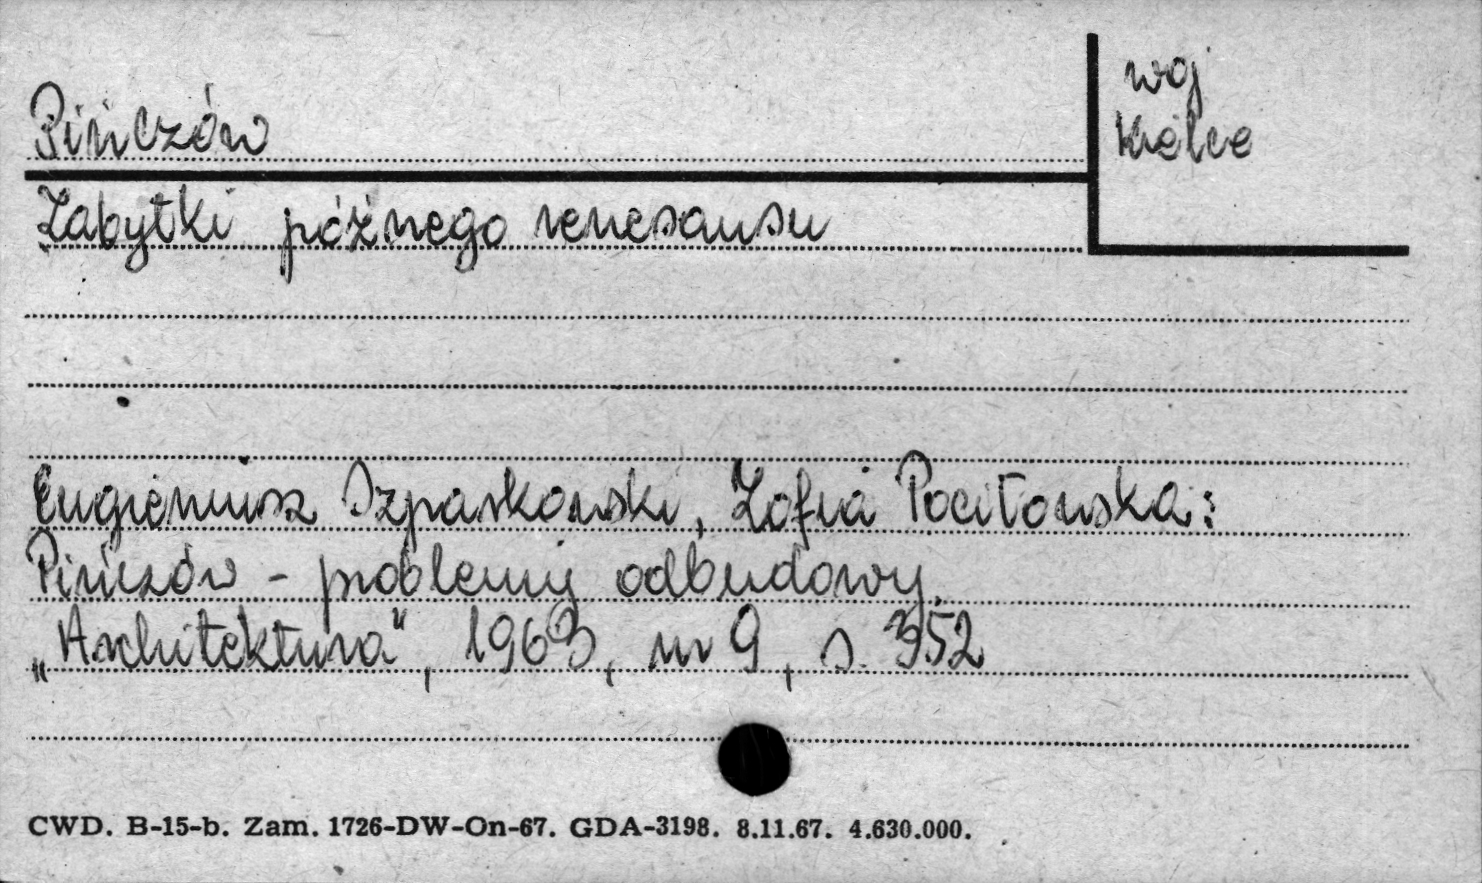 Pińczów
woj
Kielce
Zabytki późnego renesansu
Eugieniusz Szparkowski, Zofia Pociłowska:
Pińczów - problemy odbudowy.
„Architektura", 1963, nr 9, s. 352
CWD. B-15-b. Zam. 1726-DW-On-67. GDA-3198. 8.11.67. 4.630.000.